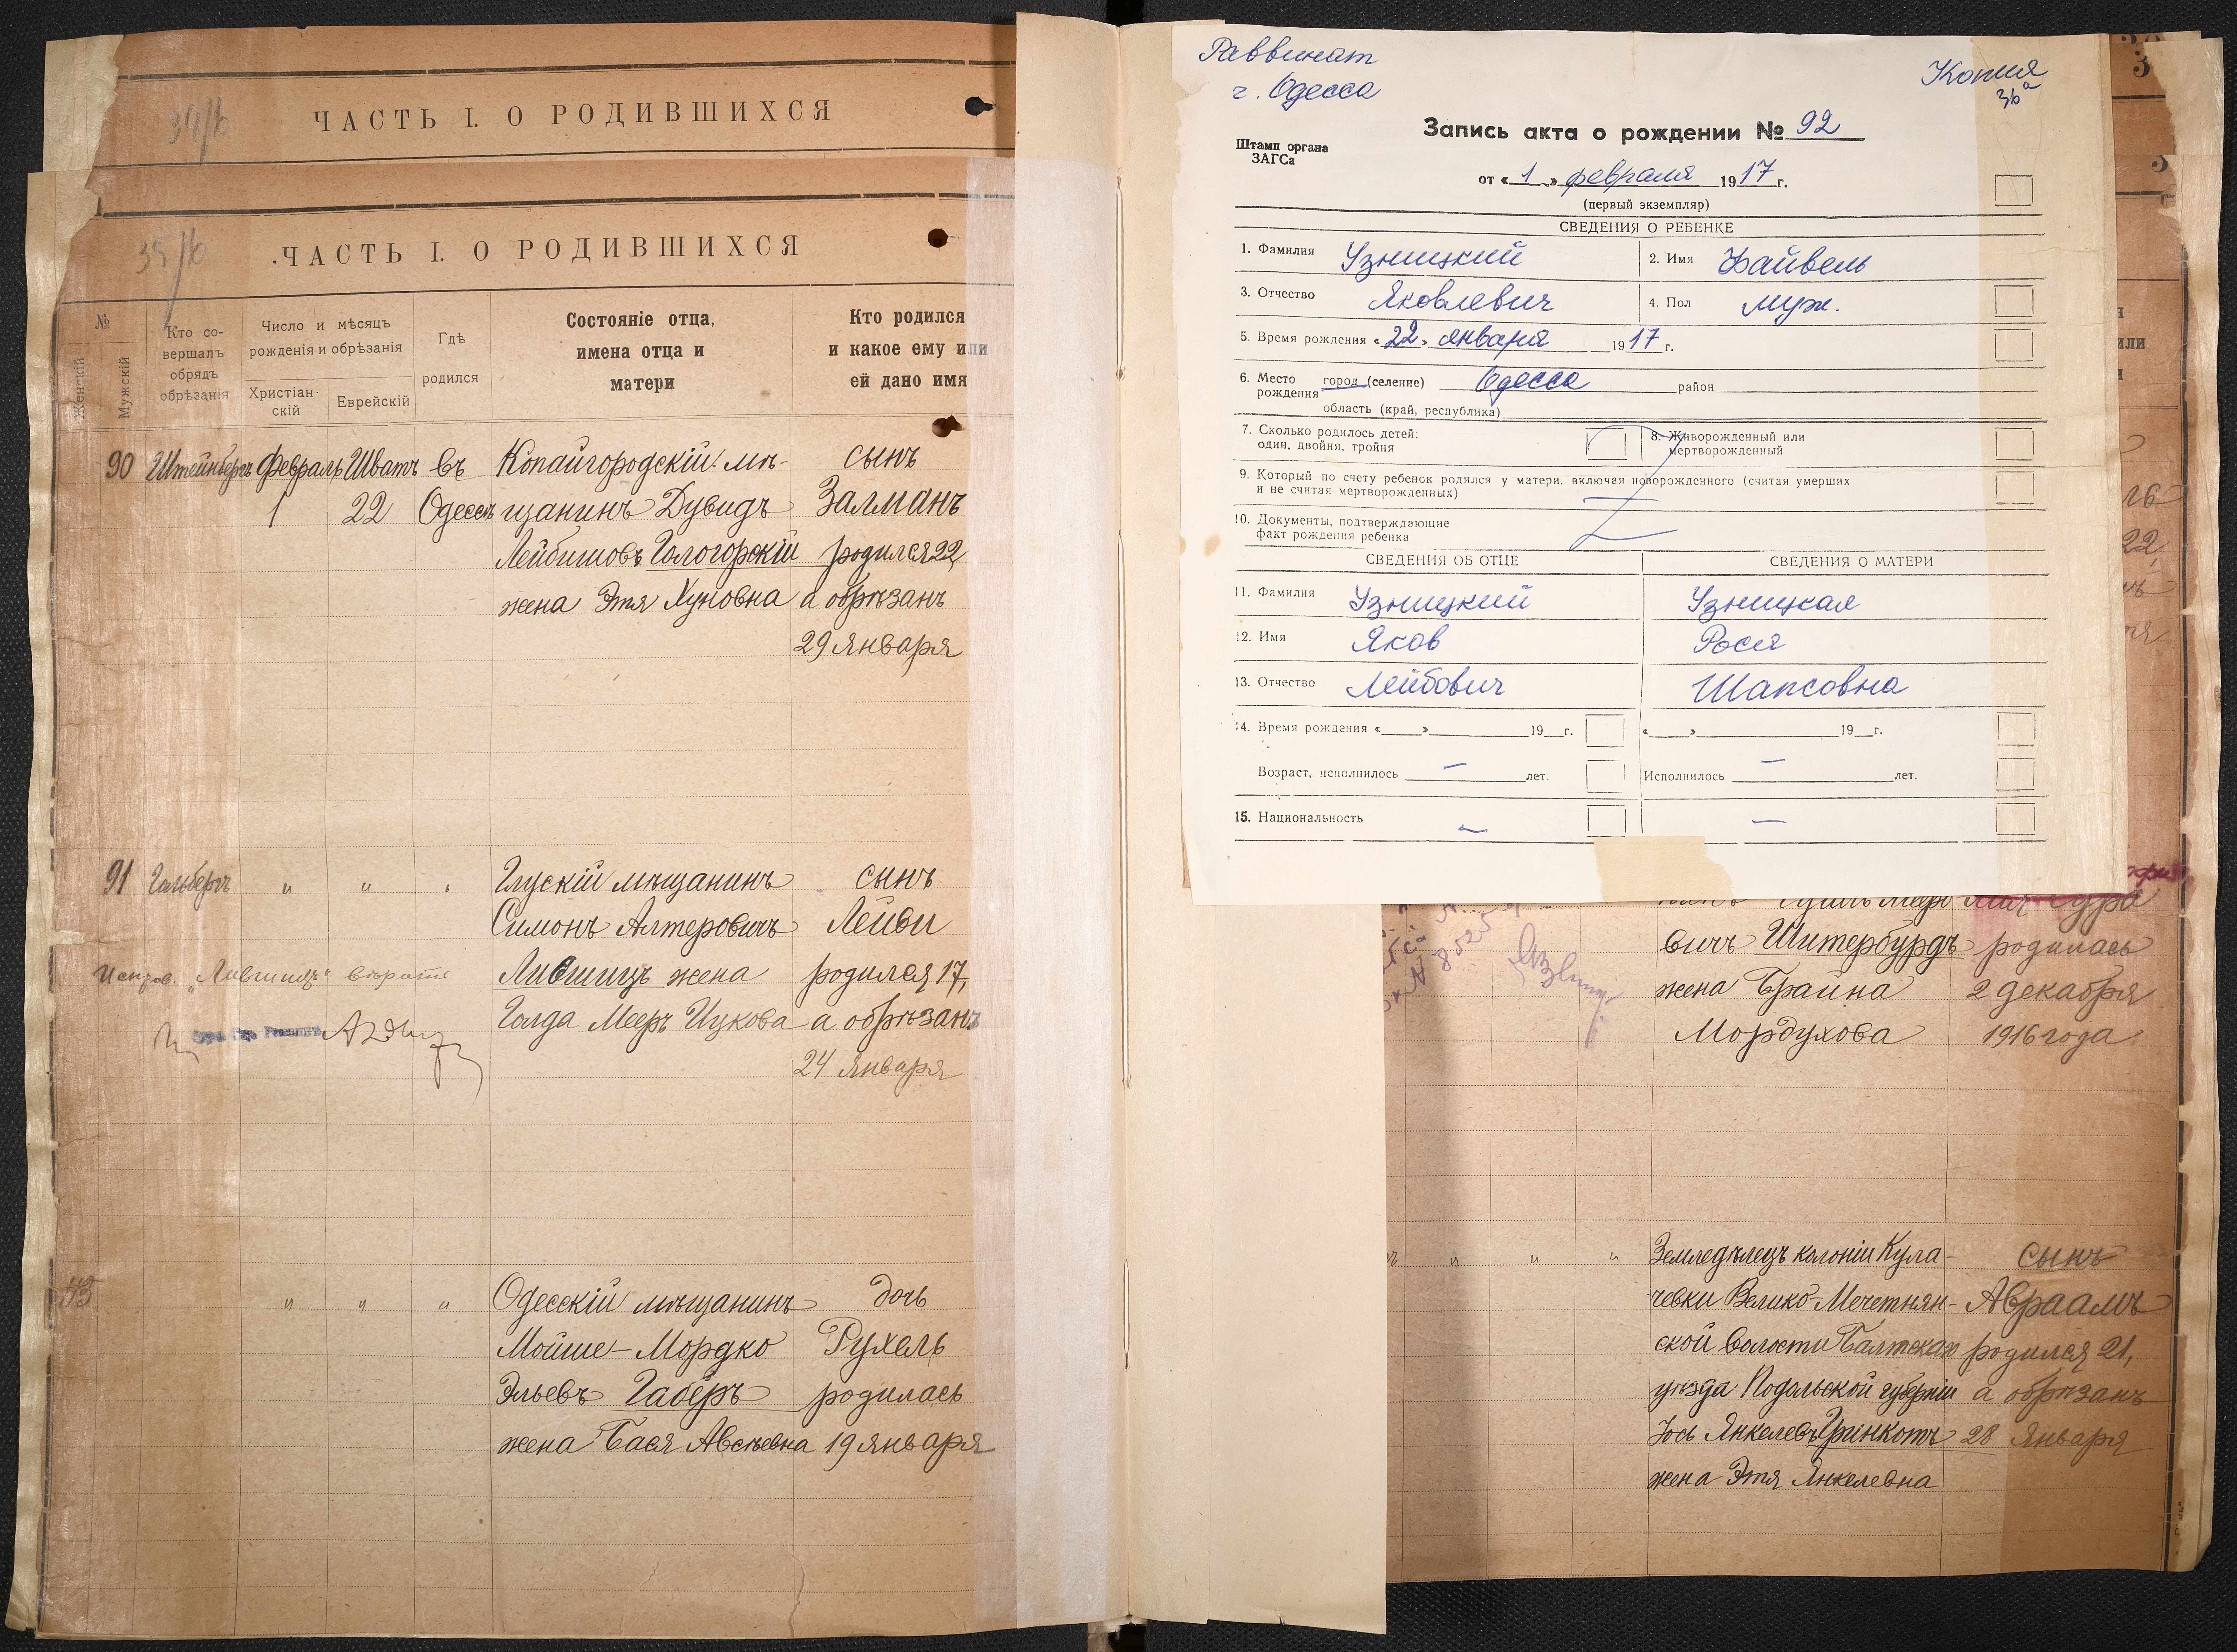 34/б
ЧАСТЬ I. О РОДИВШИХСЯ
35/б
ЧАСТЬ I. О РОДИВШИХСЯ
№
Женскій
Мужскій
Кто со-
вершалъ
обрядъ
обрѣзанія
Число и мѣсяцъ
рожденія и обрѣзанія
Христіан-
скій
Еврейскій
Гдѣ
родился
Состояніе отца,
имена отца и
матери
Кто родился
и какое ему или
ей дано имя
90 Штейнбергъ Февраль Шватъ въ Копайгородскій мѣ- сынъ
1 22 Одессѣ щанинъ Дувидъ Залманъ
Лейбишовъ Гологорскій родился 22,
жена Этя Хуновна а обрѣзанъ
29 Января
91 Гальберъ " " " Глускій мѣщанинъ сынъ
Симонъ Алтеровичъ Лейви
Испров. „Лившицъ" вѣрить Лившицъ жена родился 17,
Голда Мееръ Ицкова а обрѣзанъ
24 Января
43 " " " Одесскій мѣщанинъ дочь
Мойше-Мордко Рухель
Эльевъ Габеръ родилась
жена Бася Авсѣевна 19 января
Раввинат
г. Одесса
Копия
36а
Штамп органа
ЗАГСа
Запись акта о рождении № 92
от « 1 » февраля 1917 г.
(первый экземпляр)
СВЕДЕНИЯ О РЕБЕНКЕ
1. Фамилия Узницкий 2. Имя Файвель
3. Отчество Яковлевич 4. Пол муж.
5. Время рождения « 22 » января 1917 г.
6. Место рождения город (селение) Одесса район
область (край, республика)
7. Сколько родилось детей:
один, двойня, тройня
8. Живорожденный или
мертворожденный
9. Который по счету ребенок родился у матери, включая новорожденного (считая умерших
и не считая мертворожденных)
10. Документы, подтверждающие
факт рождения ребенка
СВЕДЕНИЯ ОБ ОТЦЕ СВЕДЕНИЯ О МАТЕРИ
11. Фамилия Узницкий Узницкая
12. Имя Яков Рося
13. Отчество Лейбович Шапсовна
14. Время рождения « » 19 г. « » 19 г.
Возраст, исполнилось — лет. Исполнилось — лет.
15. Национальность — —
вичъ Штербурдъ родилась
жена Брайна 2 декабря
Мордухова 1916 года
" " " Земледѣлецъ колоніи Кула- сынъ
чевки Велико-Мечетнян- Авраамъ
ской волости Балтскаго родился 21,
уѣзда Подольской губерніи а обрѣзанъ
Іось Янкелевъ Гринкотъ 28 Января
жена Этя Янкелевна